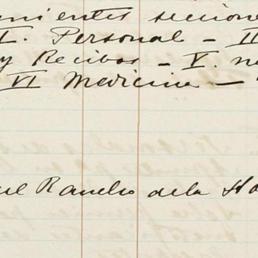 nientes seccione
I. Personal — II
y Recibos — V. n
VI Medicina —
el Rancho de la Ho